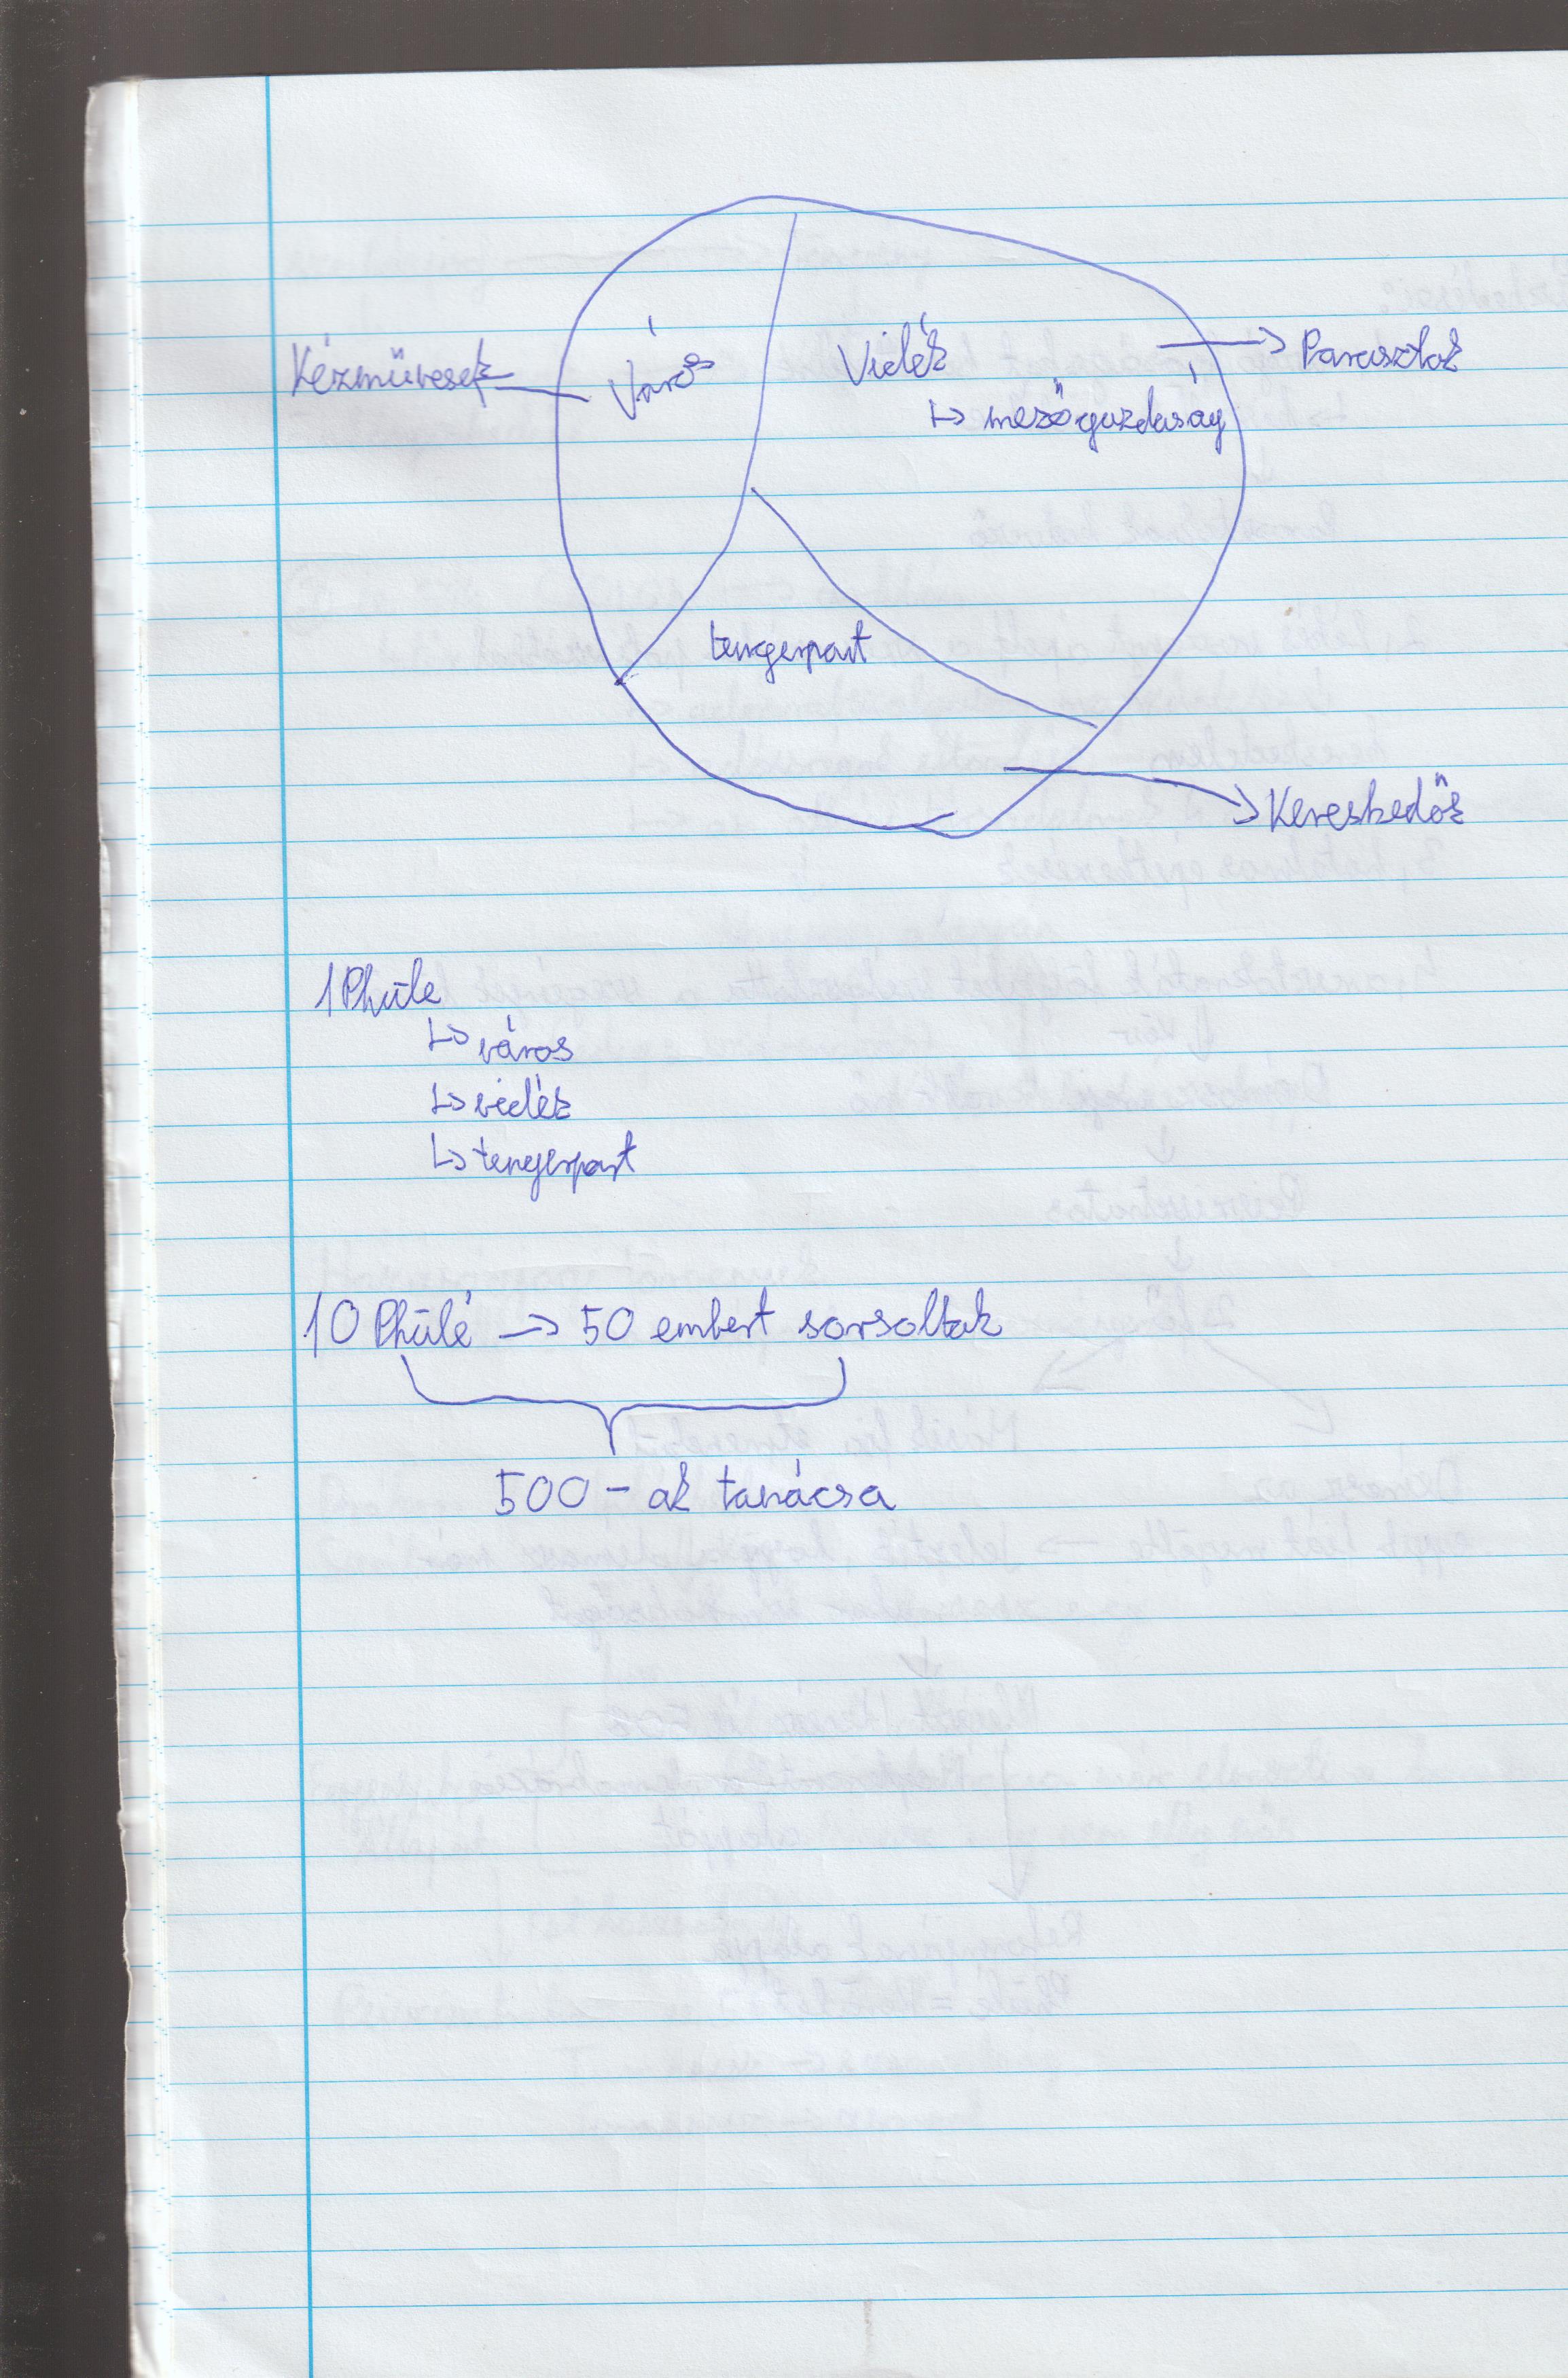 Kézművesek
Város
Vidék
↳ mezőgazdaság
→ Parasztok
tengerpart
→ Kereskedők
1 Phüle
↳ város
↳ vidék
↳ tengerpart
10 Phülé → 50 embert sorsoltak
500 - ak tanácsa